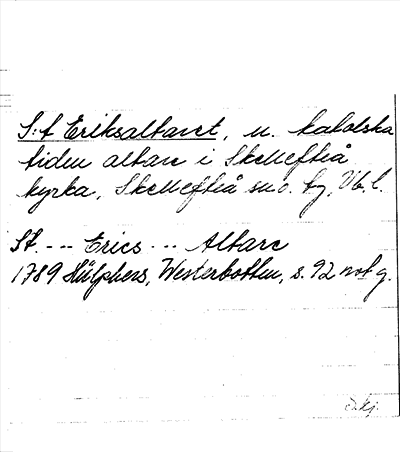 S:t Eriksaltaret, u. katolska
tiden altare i Skellefteå
kyrka, Skellefteå sn o. tg, Vb. l.
St. --- Erics --- Altare
1789 Hülphers, Westerbotten, s. 92 not g.